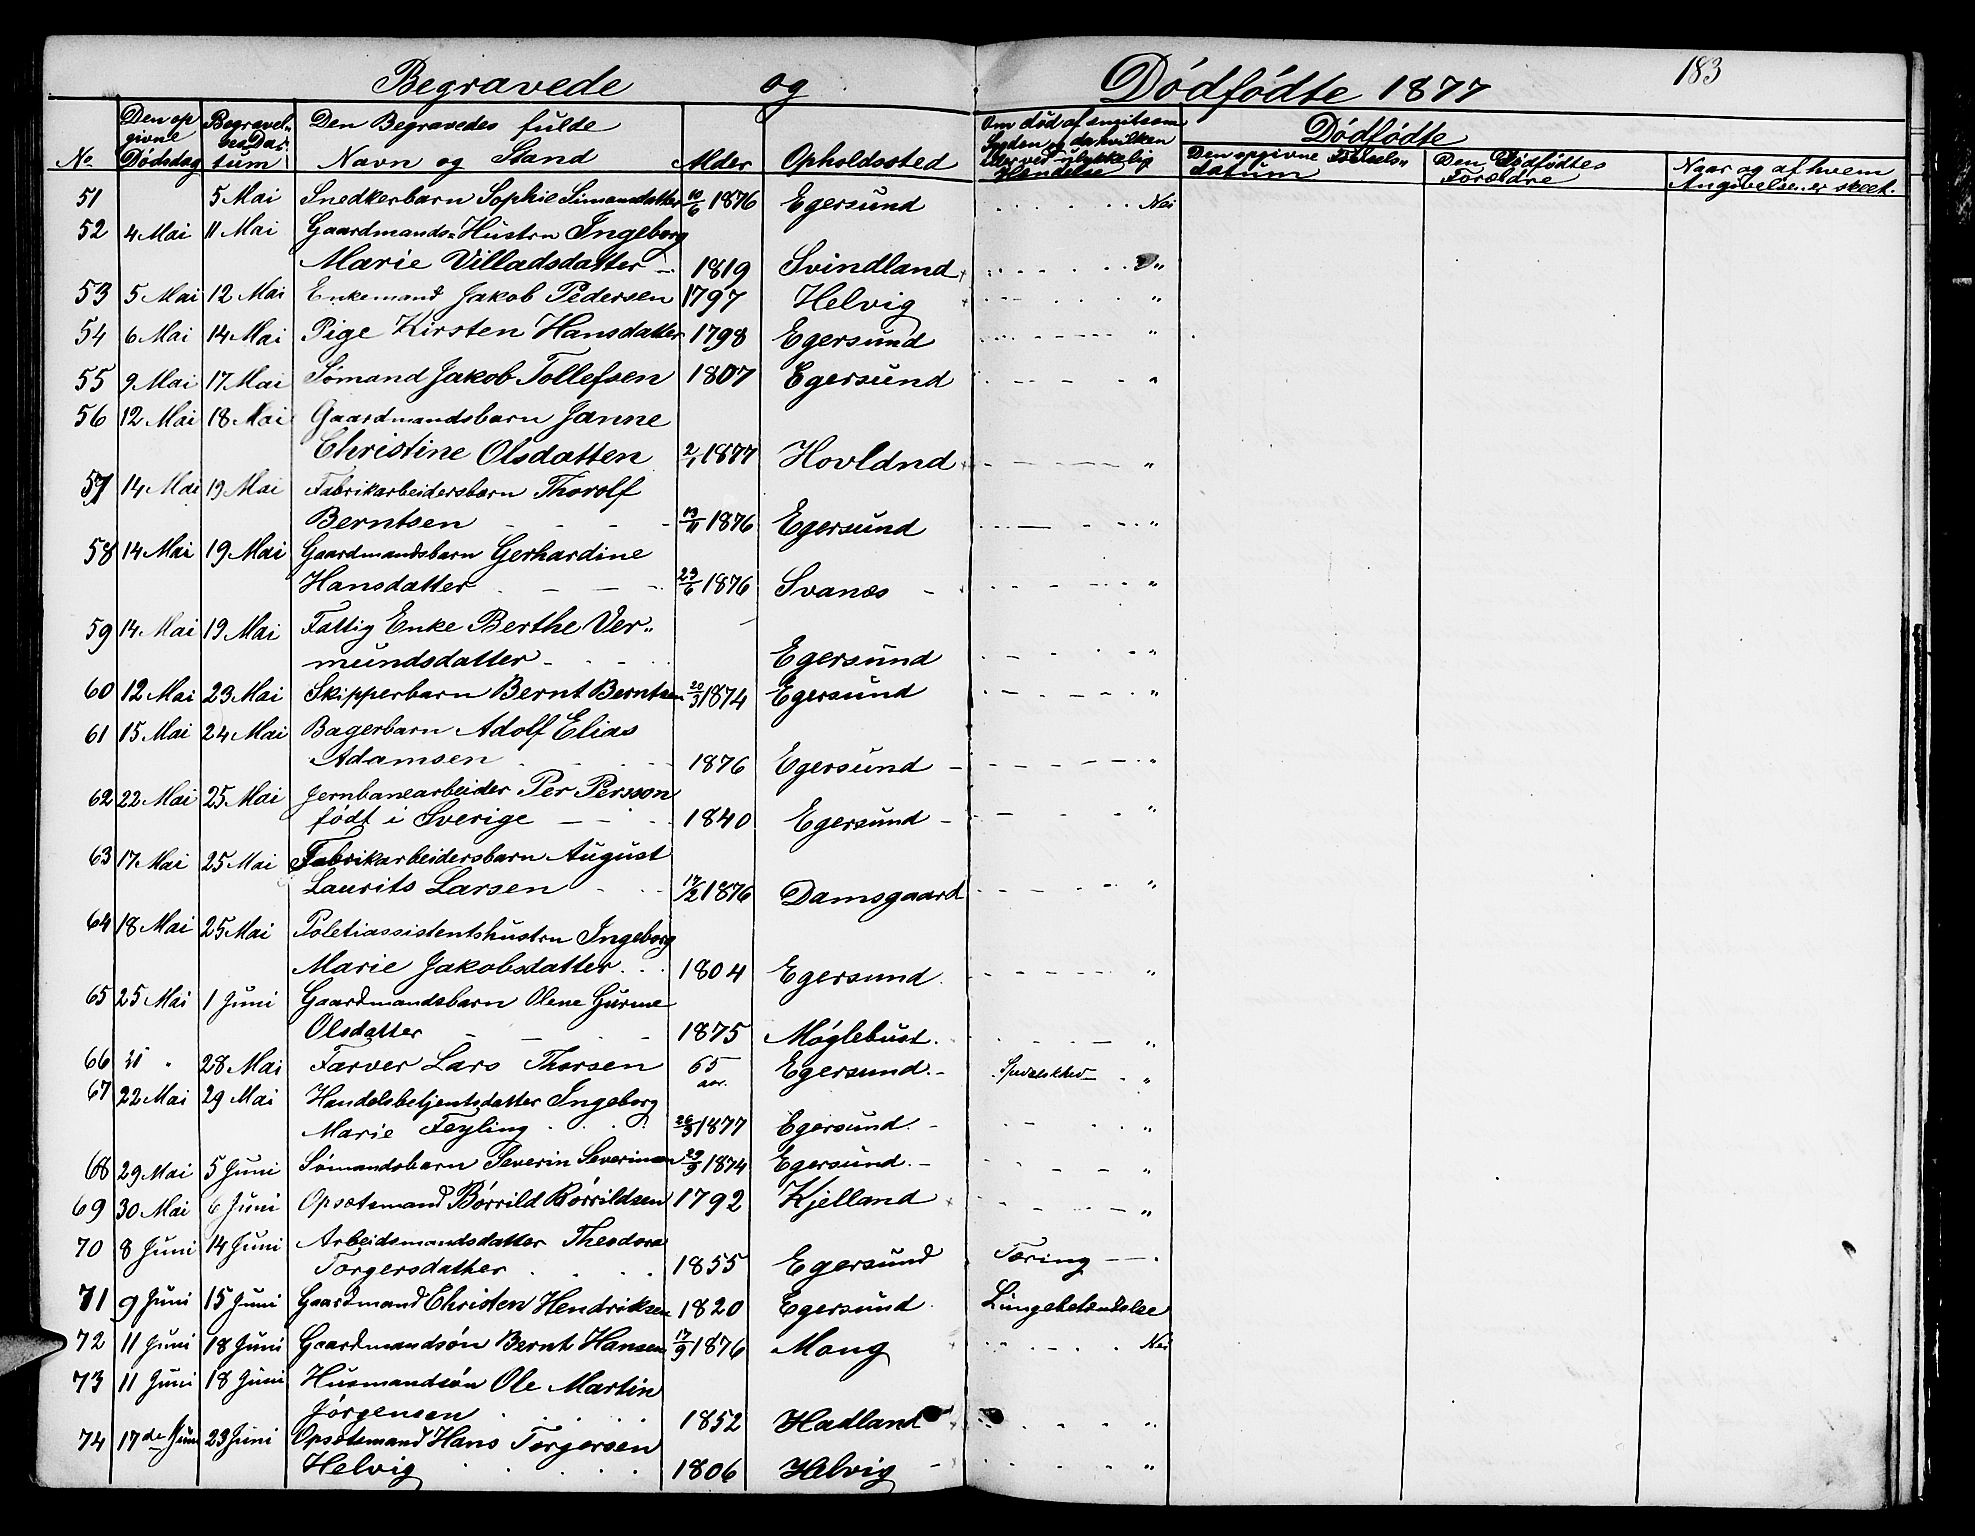 183
Begravede og Dödfödte 1877
No. Den op givne Dödsdag Begravel„ ses Da„ tum Den Begravedes fulde Navn og Stand Alder Opholdssted Om död af smitsom Sygdom og da hvilken eller ved ulykkelig Hendelse Dödfödte Den opgivne Födsels„ datum Den Dödfödtes Forældre Naar og af hvem Angivelsen er skeet.
51 5 Mai Snedkerbarn Sophie Simonsdatter 10/6 1876 Egersund Nei
52 4 Mai 11 Mai Gaardmands-Hustru Ingeborg
Marie Villadsdatter 1819 Svindland „
53 5 Mai 12 Mai Enkemand Jakob Pedersen 1797 Helvig „
54 6 Mai 14 Mai Pige Kirsten Hansdatter 1798 Egersund „
55 9 Mai 17 Mai Sömand Jakob Tollefsen 1807 Egersund „
56 12 Mai 18 Mai Gaardmandsbarn Janne
Christine Olsdatten 2/1 1877 Hovldnd „
57 14 Mai 19 Mai Fabrikarbeidersbarn Thorolf
Berntsen 13/11 1876 Egersund „
58 14 Mai 19 Mai Gaardmandsbarn Gerhardine
Hansdatter 23/6 1876 Svanæs „
59 14 Mai 19 Mai Fattig Enke Berthe Ver„
mundsdatter Egersund „
60 12 Mai 23 Mai Skipperbarn Bernt Berntsen 20/3 1874 Egersund „
61 15 Mai 24 Mai Bagerbarn Adolf Elias
Adamsen 1876 Egersund „
62 22 Mai 25 Mai Jernbanearbeider Per Persson
födt i Sverige 1840 Egersund „
63 17 Mai 25 Mai Fabrikarbeidersbarn August
Laurits Larsen 17/2 1876 Damsgaard „
64 18 Mai 25 Mai Poletiassistentshustru Ingeborg
Marie Jakobsdatter 1804 Egersund „
65 25 Mai 1 Juni Gaardmandsbarn Olene Gurine
Olsdatter 1875 Möglebust „
66 21 „ 28 Mai Farver Lars Thorsen 65 aar. Egersund Spedalskhed „
67 22 Mai 29 Mai Handelsbetjentsdatter Ingeborg
Marie Feyling 26/3 1877 Egersund „
68 29 Mai 5 Juni Sömandsbarn Severin Severinsen 29/9 1874 Egersund „
69 30 Mai 6 Juni Opsætsmand Börrild Börrildsen 1792 Kjelland „
70 8 Juni 14 Juni Arbeidsmandsdatter Theodora
Torgersdatter 1855 Egersund Tæring
71 9 Juni 15 Juni Gaardmand Christen Hendriksen 1820 Egersund Lungebetændelse
72 11 Juni 18 Juni Gaardmandsön Bernt Hansen 17/9 1876 Mong Nei
73 11 Juni 18 Juni Husmandsön Ole Martin
Jörgensen 1852 Hadland „
74 17de Juni 23 Juni Opsætsmand Hans Torgersen
Helvig 1806 Helvig „